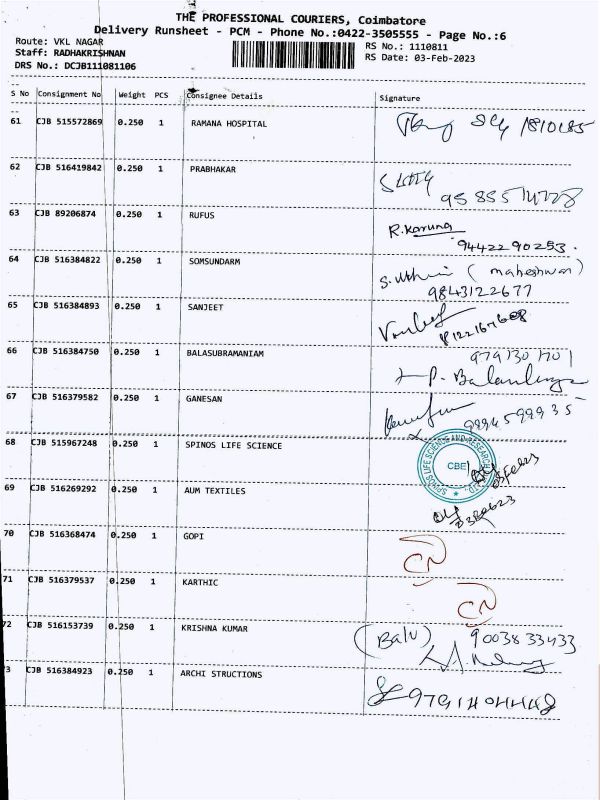 THE PROFESSIONAL COURIERS, Coimbatore
Delivery Runsheet - PCM - Phone No.:0422-3505555 - Page No.:6
Route: VKL NAGAR
RS No.: 1110811
Staff: RADHAKRISHNAN
RS Date: 03-Feb-2023
DRS No.: DCJB111081106
S No Consignment No Weight PCS Consignee Details Signature
61 CJB 515572869 0.250 1 RAMANA HOSPITAL
62 CJB 516419842 0.250 1 PRABHAKAR
63 CJB 89206874 0.250 1 RUFUS R.Karuna
9442290253.
64 CJB 516384822 0.250 1 SOMSUNDARM (maheshwari)
9843122677
65 CJB 516384893 0.250 1 SANJEET
66 CJB 516384750 0.250 1 BALASUBRAMANIAM
67 CJB 516379582 0.250 1 GANESAN
9994599935
68 CJB 515967248 0.250 1 SPINOS LIFE SCIENCE
SPINOS LIFE SCIENCE AND RESEARCH
CBE
03Feb23
69 CJB 516269292 0.250 1 AUM TEXTILES
70 CJB 516368474 0.250 1 GOPI CN
71 CJB 516379537 0.250 1 KARTHIC CN
72 CJB 516153739 0.250 1 KRISHNA KUMAR (Balu) 9003833433
73 CJB 516384923 0.250 1 ARCHI STRUCTIONS